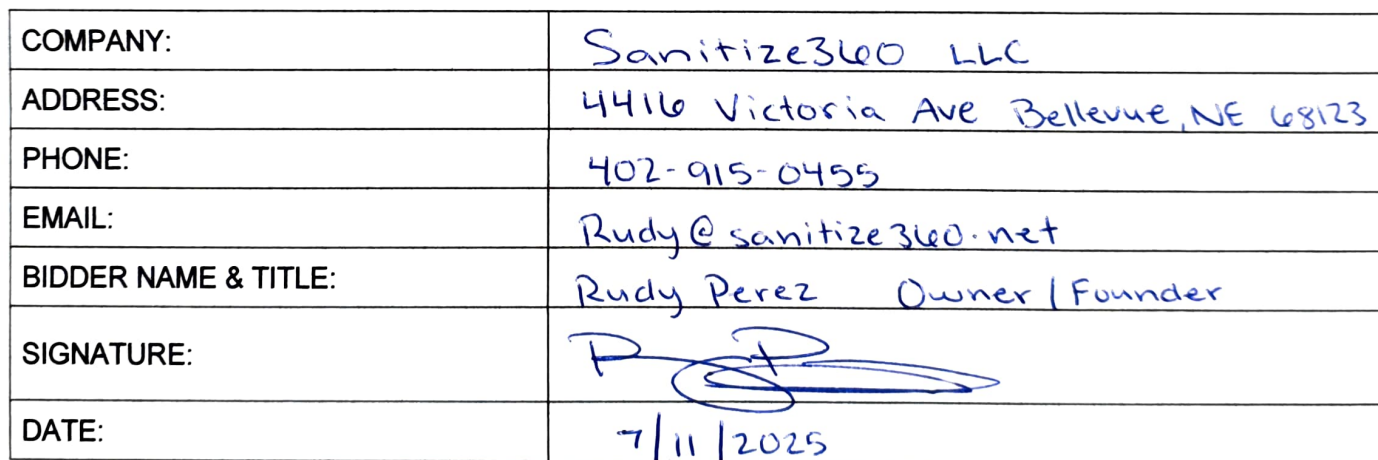 COMPANY: Sanitize360 LLC
ADDRESS: 4416 Victoria Ave Bellevue, NE 68123
PHONE: 402-915-0455
EMAIL: Rudy@sanitize360.net
BIDDER NAME & TITLE: Rudy Perez Owner/Founder
SIGNATURE:
DATE: 7/11/2025